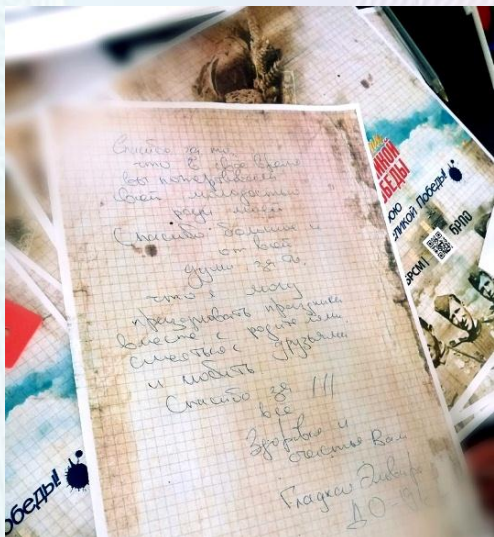 Спасибо за то,
что в своё время
вы пожертвовали
своей молодостью
ради моей
Спасибо большое и
от всей
души за то,
что я могу
праздновать праздники
вместе с родителями
смеяться с друзьями
и любить
Спасибо за !!!
всё
Здоровья и
счастья Вам
Гладкая
ДО
ПОБЕДЫ
ЛИКОЙ Победы!
БРСМ |
БРПО
обеды!